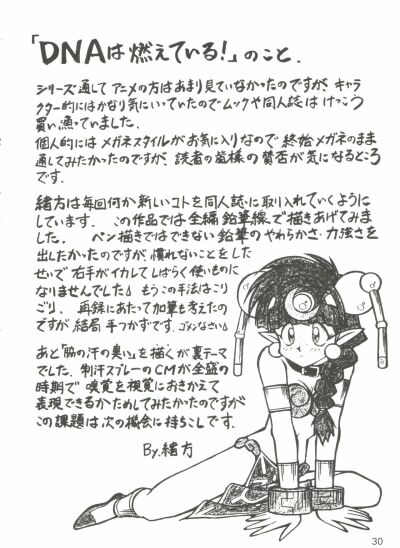 「DNAは燃えている!」のこと.
シリーズ通して アニメの方はあまり見ていなかったのですが、キャラ
クター的にはかなり気にいっていたのでムックや同人誌は けっこう
買い漁っていました.
個人的には メガネスタイルがお気に入りなので 終始 メガネのまま
通してみたかったのですが、読者の皆様の賛否が気になるところ
です.
緒方は毎回何か新しいコトを同人誌に取り入れていくように
しています. この作品では全編 鉛筆線で描きあげてみま
した. ペン描きではできない鉛筆のやわらかさ・力強さを
出したかったのですが 慣れないことをした
せいで 右手がイカレてしばらく使いものに
なりませんでした。 もうこの手法はこり
ごり. 再録にあたって加筆も考えたの
ですが結局 手つかずです. ゴメンなさい。
あと「脇の汗の臭い」を描くが裏テーマ
でした. 制汗スプレーのCMが全盛の
時期で 嗅覚を視覚におきかえて
表現できるかためしてみたかったのですが
この課題は次の機会に持ちこしです.
By.緒方
30